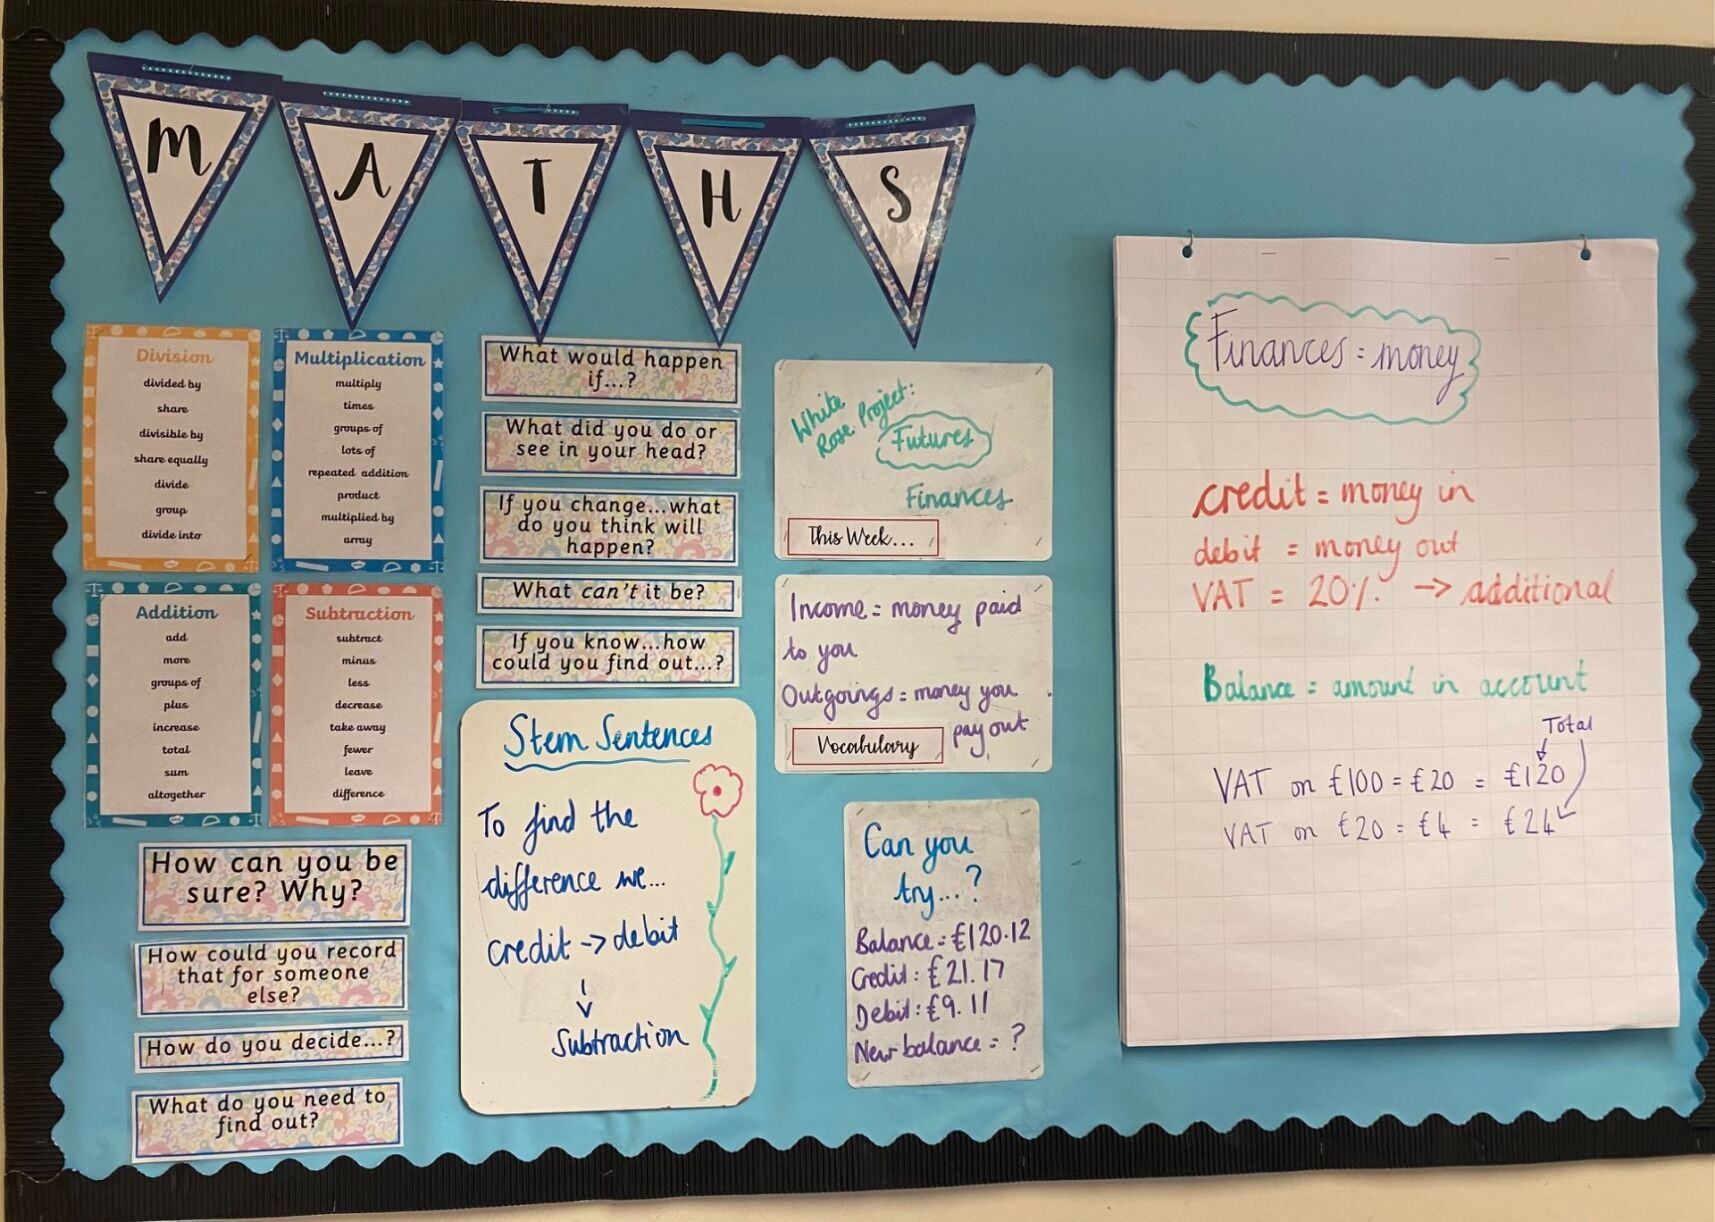 M A T H S
Division
divided by
share
divisible by
share equally
divide
group
divide into
Multiplication
multiply
times
groups of
lots of
repeated addition
product
multiplied by
array
Addition
add
more
groups of
plus
increase
total
sum
altogether
Subtraction
subtract
minus
less
decrease
take away
fewer
leave
difference
How can you be
sure? Why?
How could you record
that for someone
else?
How do you decide...?
What do you need to
find out?
What would happen
if...?
What did you do or
see in your head?
If you change...what
do you think will
happen?
What can't it be?
If you know...how
could you find out...?
Stem Sentences
To find the
difference we...
credit -> debit
Subtraction
White
Rose Project:
Futures
Finances
This Week...
Income = money paid
to you
Outgoings = money you
pay out
Vocabulary
Can you
try...?
Balance = £120.12
Credit: £21.17
Debit: £9.11
New balance = ?
Finances = money
credit = money in
debit = money out
VAT = 20% -> additional
Balance = amount in account
Total
VAT on £100 = £20 = £120
VAT on £20 = £4 = £24